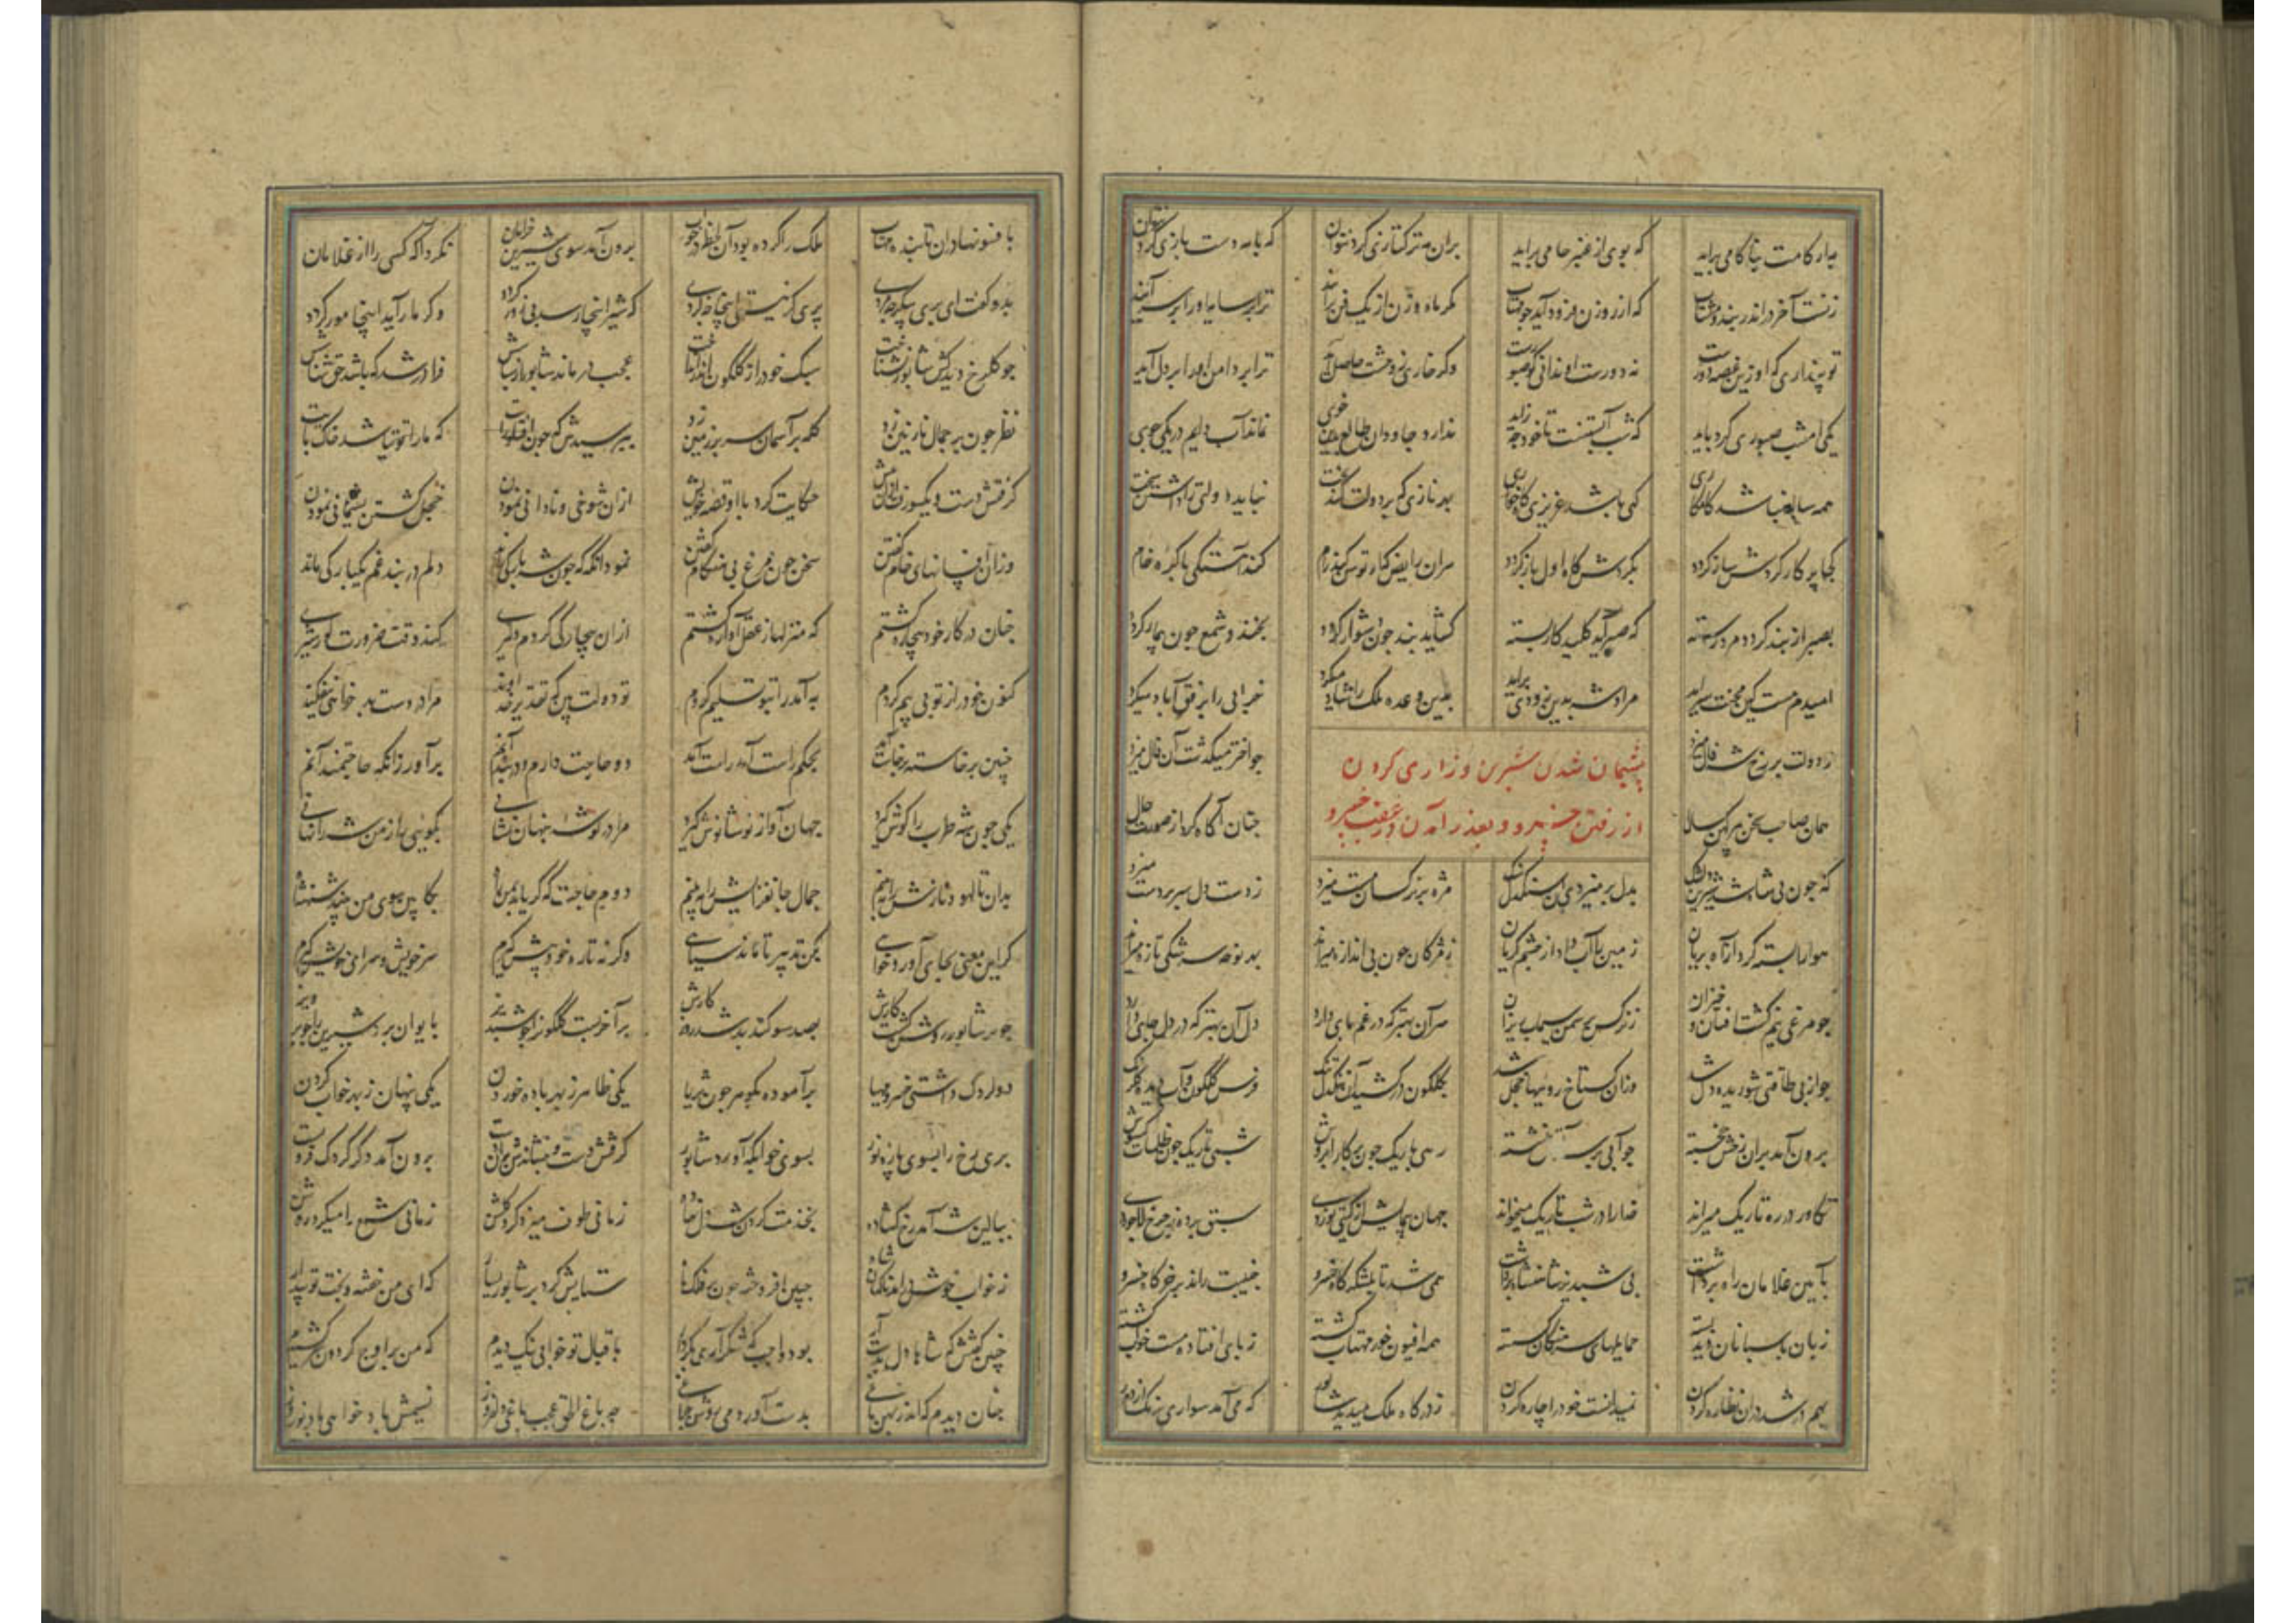 بدار کامت بناکامی برآید که بوی از عنبر خامی برآید بران مه ترکتازی کرد نتوان که با مه دست بازی کرد نتوان
زنست آخر در اندر بند و مشتاب که از روزن فرود آید چو مهتاب مگر ماه و زن از یک فن برآیند
تو پنداری که او زین غصه دورست نه دورست او ندانی کو صبورست وگر خاری ز وحشت حاصل آید ترا بر دامن او را بر دل آید
یک امشب صبوری کرد باید که شب آبستنست تا خود چه زاید ندارد جاودان طالع یکی خوی نماند آب دایم در یکی جوی
همه ساله نباشد کامکاری گهی باشد عزیزی گاه خواری بهر نازی که بر دولت کند بخت نباید دولتی را داشتن سخت
کجا پرکار کردش ساز کردد بکردش کاه اول باز کردد هران رایض که او توسن کند رام کند آهستگی با کره خام
بصبر از بند کردد مرد رسته که صبر آمد کلید کار بسته کشاید بند چون دشوار کردد بخندد شمع چون بیمار کردد
امیدم هست کین محنت سرآید مرادت شه بدین زودی برآید بدین وعده ملک را شاد میکرد خرابی را برفق آباد میکرد
ز دولت بر رخ شه فال میزد چو اختر میکذشت آن فال میزد
پشیمان شدن شیرین و زاری کردن
از رفتن خسرو و بعذر آمدن در عقب خسرو
همان صاحب سخن پیر کهن سال چنان آکاه کرد از صورت حال
که چون بی شاه شد شیرین دلتنک بدل بر میزدی از سنکدل سنک مژه بر نرکسان مست میزد ز دست دل بسر بر دست میزد
هوا را بسته کرد از آه بریان زمین را آب داد از چشم کریان ز مژکان خون بی اندازه میراند بهر نوحه سرشکی تازه میراند
چو مرغی نیم کشت افتان و خیزان ز نرکس بر سمن سیماب ریزان سر آن بهتر که در غم پای دارد دل آن بهتر که در دل جای دارد
چو از بی طاقتی شوریده دل شد وزان کستاخ رویها خجل شد بکلکون درکشید آن تنکدل تنک فرس کلکون و آب دیده کلرنک
برون آمد بران رخش خجسته چو آبی بر سر آتش نشسته رهی باریک چون پرکار ابروش شبی تاریک چون ظلمات کیسوش
تکاور در ره تاریک میراند خدا را در شب تاریک میخواند جهان پیمایش از کیتی نوردی سبق برده ز چرخ لاجوردی
بآیین غلامان راه برداشت پی شبدیز شاهنشاه برداشت همی شد تا بلشکرکاه خسرو جنیبت راند بر خرکاه خسرو
زبان پاسبانان دید بسته حمایلهای سرهنکان کسسته همه افیون خور مهتاب کشته ز پای افتاده مست خواب کشته
بهم درشد دران نظاره کردن نمیدانست خود را چاره کردن ز درکاه ملک میدید شاپور که می آمد سواری بر تک از دور
بافسونها دران تابنده مهتاب ملک را کرده بود آن لحظه در خواب برون آمد سوی شیرین خرامان نکرد آکه کسی را از غلامان
بدو کفت ای پری پیکر چه مردی پری کر نیستی اینجا چه کردی که شیر اینجا رسد بی زور کردد وکر مار آید اینجا مور کردد
چو کلرخ دید کش شاپور بشناخت سبک خود را ز کلکون اندر انداخت عجب درماند شاپور از سپاسش فراتر شد که باشد حق شناسش
نظر چون بر جمال نازنین زد کله بر آسمان سر بر زمین زد بپرسیدش که چون افتاد رایت که ما را توتیا شد خاک پایت
کرفتش دست و یکسو رفت حکایت کرد با او قصه خویش ازان شوخی و نادانی نمودن خجل کشتن پشیمانی نمودن
وزان افسانهای خام کفتن سخن چون مرغ بی هنکام کفتن نمود آنکه که چون شه بارکی راند دلم در بند غم یکبارکی ماند
چنان در کار خود بیچاره کشتم که منزلها ز عقل آواره کشتم ازان بیچارکی کردم دلیری کند وقت ضرورت کور شیری
کنون خود را ز تو بی بیم کردم به آمد را بتو تسلیم کردم تو دولت بین که تقدیر خداوند مرا در دست بد خواهی نیفکند
چنین برخاسته بحکم راست آمد راست آمد دو حاجت دارم و دربند آنم برآور زانکه حاجتمند آنم
یکی چون شه طرب را کوش کیرد جهان آواز نوشانوش کیرد مرا در کوشه پنهان نشانی نکویی راز من شه را نهانی
بدان تا لهو و نازش را ببینم جمال جانفزایش را ببینم دوم حاجت که کر یابد بمن راه بکابین سوی من بیند شهنشاه
کر این معنی بجای آورد خواهی بکن تدبیر تا ماند سیاهی وکر نه تا ره خود پیش کیرم سر خویش و سرای خویش کیرم
چو بر شاپور روشن کشت کارش بصد سوکند شد برآخر بست کلکون را چو شبدیز بایوان برد شیرین را چو پرویز
دو خردک داشتی خسرو مهیا برآموده بکوهر چون ثریا یکی ظاهر ز بهر باده خوردن یکی پنهان ز بهر خواب کردن
پری رخ را بسوی پاره نور بسوی خوابکه آورد شاپور کرفتش دست و بنشاندش بران دست برون آمد در خرکه فرو بست
ببالین شه آمد رخ کشاده بخدمت کردن شه دل نهاده زمانی طوف میزد کرد کلشن زمانی شمع را میکرد روشن
ز خواب خوش درآمد ناکهان شاه جبین افروخته چون بر فلک ماه ستایش کرد بر شاپور بسیار که ای من خفته و بخت تو بیدار
باقبال تو خوابی نیک دیدم که من بر اوج کردون
چنان دیدم که اندر پهن باغی بدست آوردمی روشن چراغی چه باغ الحق عجب باغی دلفروز